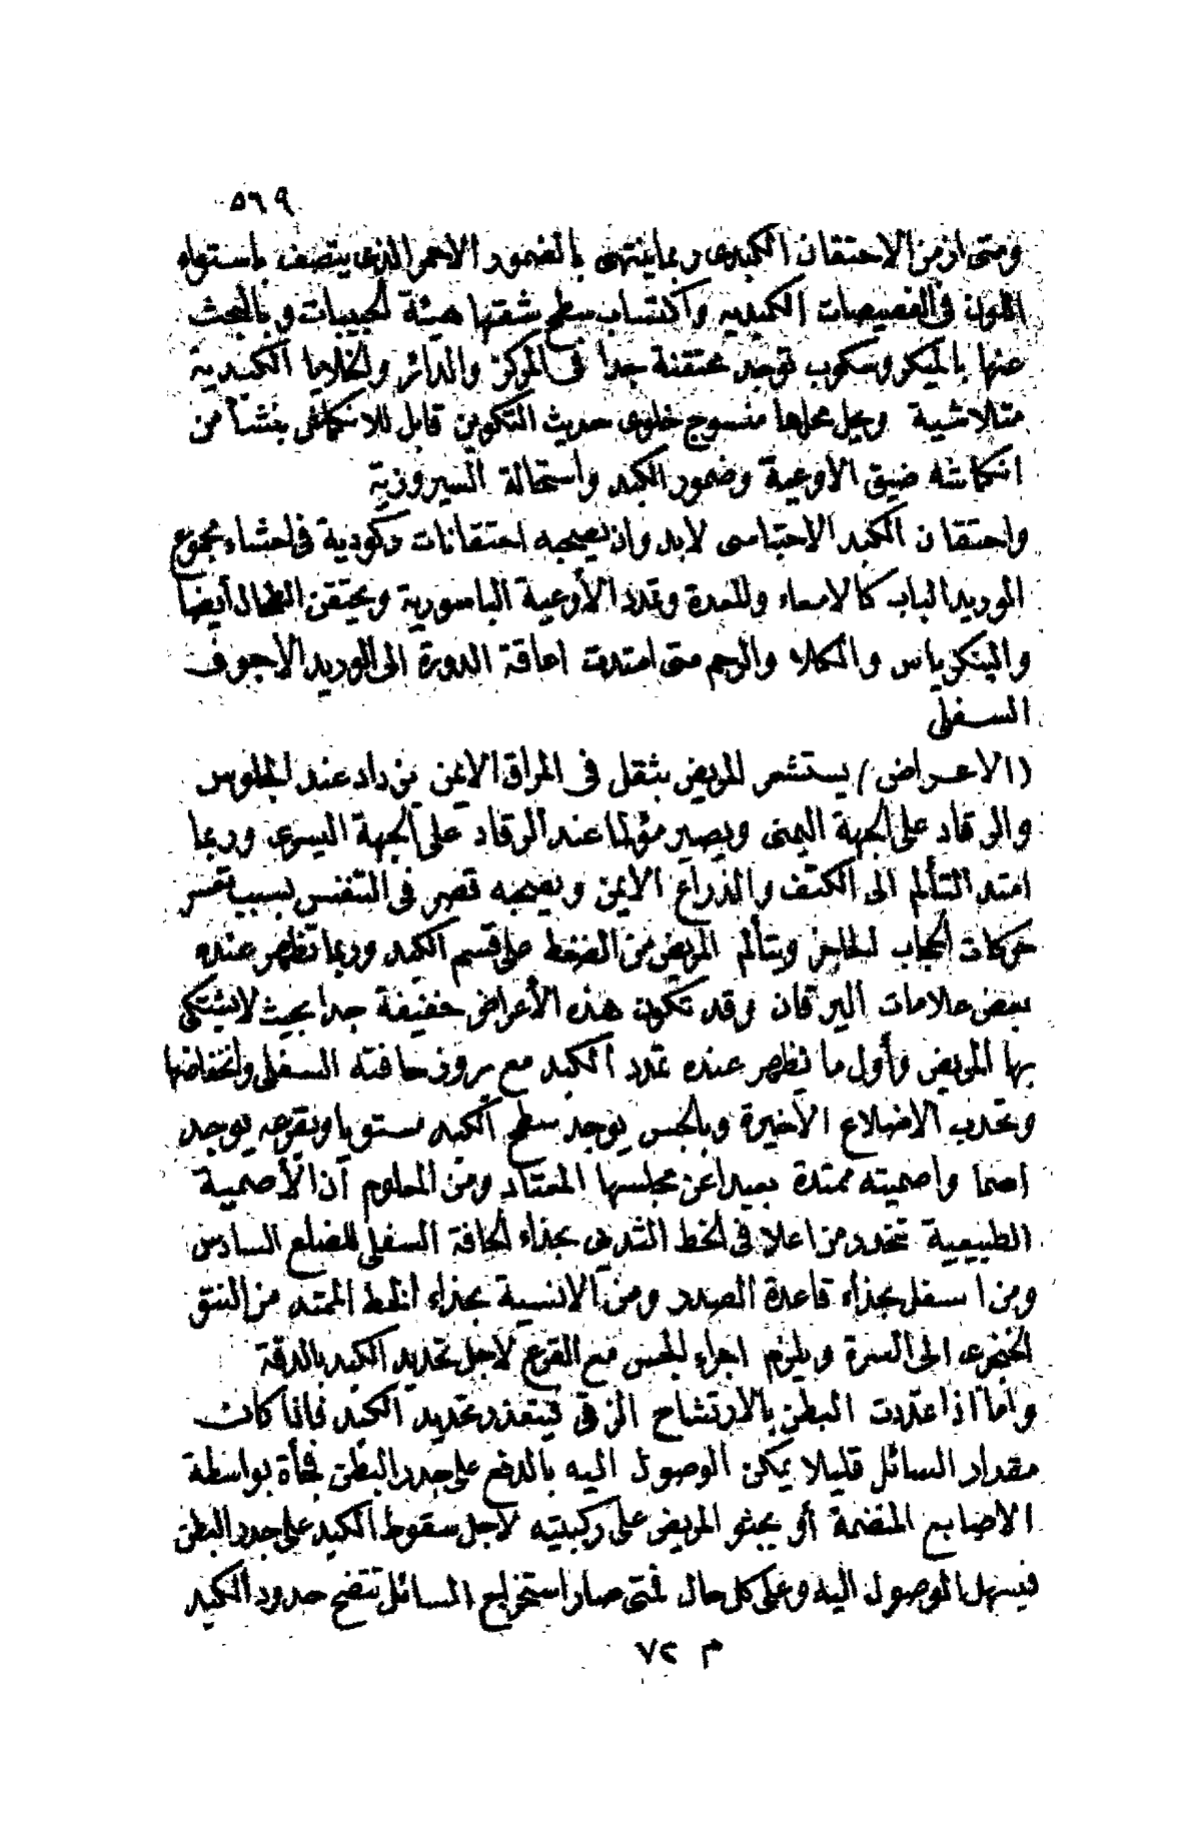 ٥٦٩
ومتى ازمن الاحتقان الكبدى ربما ينتهى بالضمور الاحمر الذى يتصف باستواء
اللون فى الفصيصات الكبديه واكتساب سطح شقتها هيئة الحبيبات وبالبحث
عنها بالميكروسكوب توجد محتقنة جدا فى المركز والدائر والخلايا الكبدية
متلاشية ويحل محلها منسوج خلوى حديث التكوين قابل للانكماش ينشأ من
انكماشه ضيق الاوعية وضمور الكبد واستحالة السيروزية
واحتقان الكبد الاحتباسى لابد وان يصحبه احتقانات ركودية فى احشاء مجموع
الوريد الباب كالامعاء والمعدة وتمدد الأوعية الباسورية ويحتقن الطحال أيضا
والبنكرياس والكلا والرحم متى امتدت اعاقة الدورة الى الوريد الاجوف
السفلى
(الاعراض) يستشعر المريض بثقل فى المراق الايمن يزداد عند الجلوس
والرقاد على الجهة اليمنى ويصير مؤلما عند الرقاد على الجهة اليسرى وربما
امتد التألم الى الكتف والذراع الايمن ويصحبه قصر فى التنفس بسبب تعسر
حركات الحجاب الحاجز ويتألم المريض من الضغط على قسم الكبد وربما تظهر عنده
بعض علامات اليرقان وقد تكون هذه الأعراض خفيفة جدا بحيث لايشتكى
بها المريض وأول ما تظهر عنده تمدد الكبد مع بروز حافته السفلى وانخفاضها
وتحدب الاضلاع الاخيرة وبالجس يوجد سطح الكبد مستويا وبقرعه يوجد
اصما واصميته ممتدة بعيدا عن مجلسها المعتاد ومن المعلوم أن الأصمية
الطبيعية تتحدد من اعلا فى الخط الثديى بحذاء الحافة السفلى للضلع السادس
ومن اسفل بحذاء قاعدة الصدر ومن الانسية بحذاء الخط الممتد من النتو
الخنجرى الى السرة ويلزم اجراء الجس مع القرع لاجل تحديد الكبد بالدقة
واما اذا تمددت البطن بالارتشاح الزقى فيتعذر تحديد الكبد فاذا كانت
مقدار السائل قليلا يمكن الوصول اليه بالدفع على جدر البطن فجأة بواسطة
الاصابع المنضمة أو يجثو المريض على ركبتيه لاجل سقوط الكبد على جدر البطن
فيسهل الوصول اليه وعلى كل حال فمتى صار استخراج السائل تتضح حدود الكبد
م ٧٢